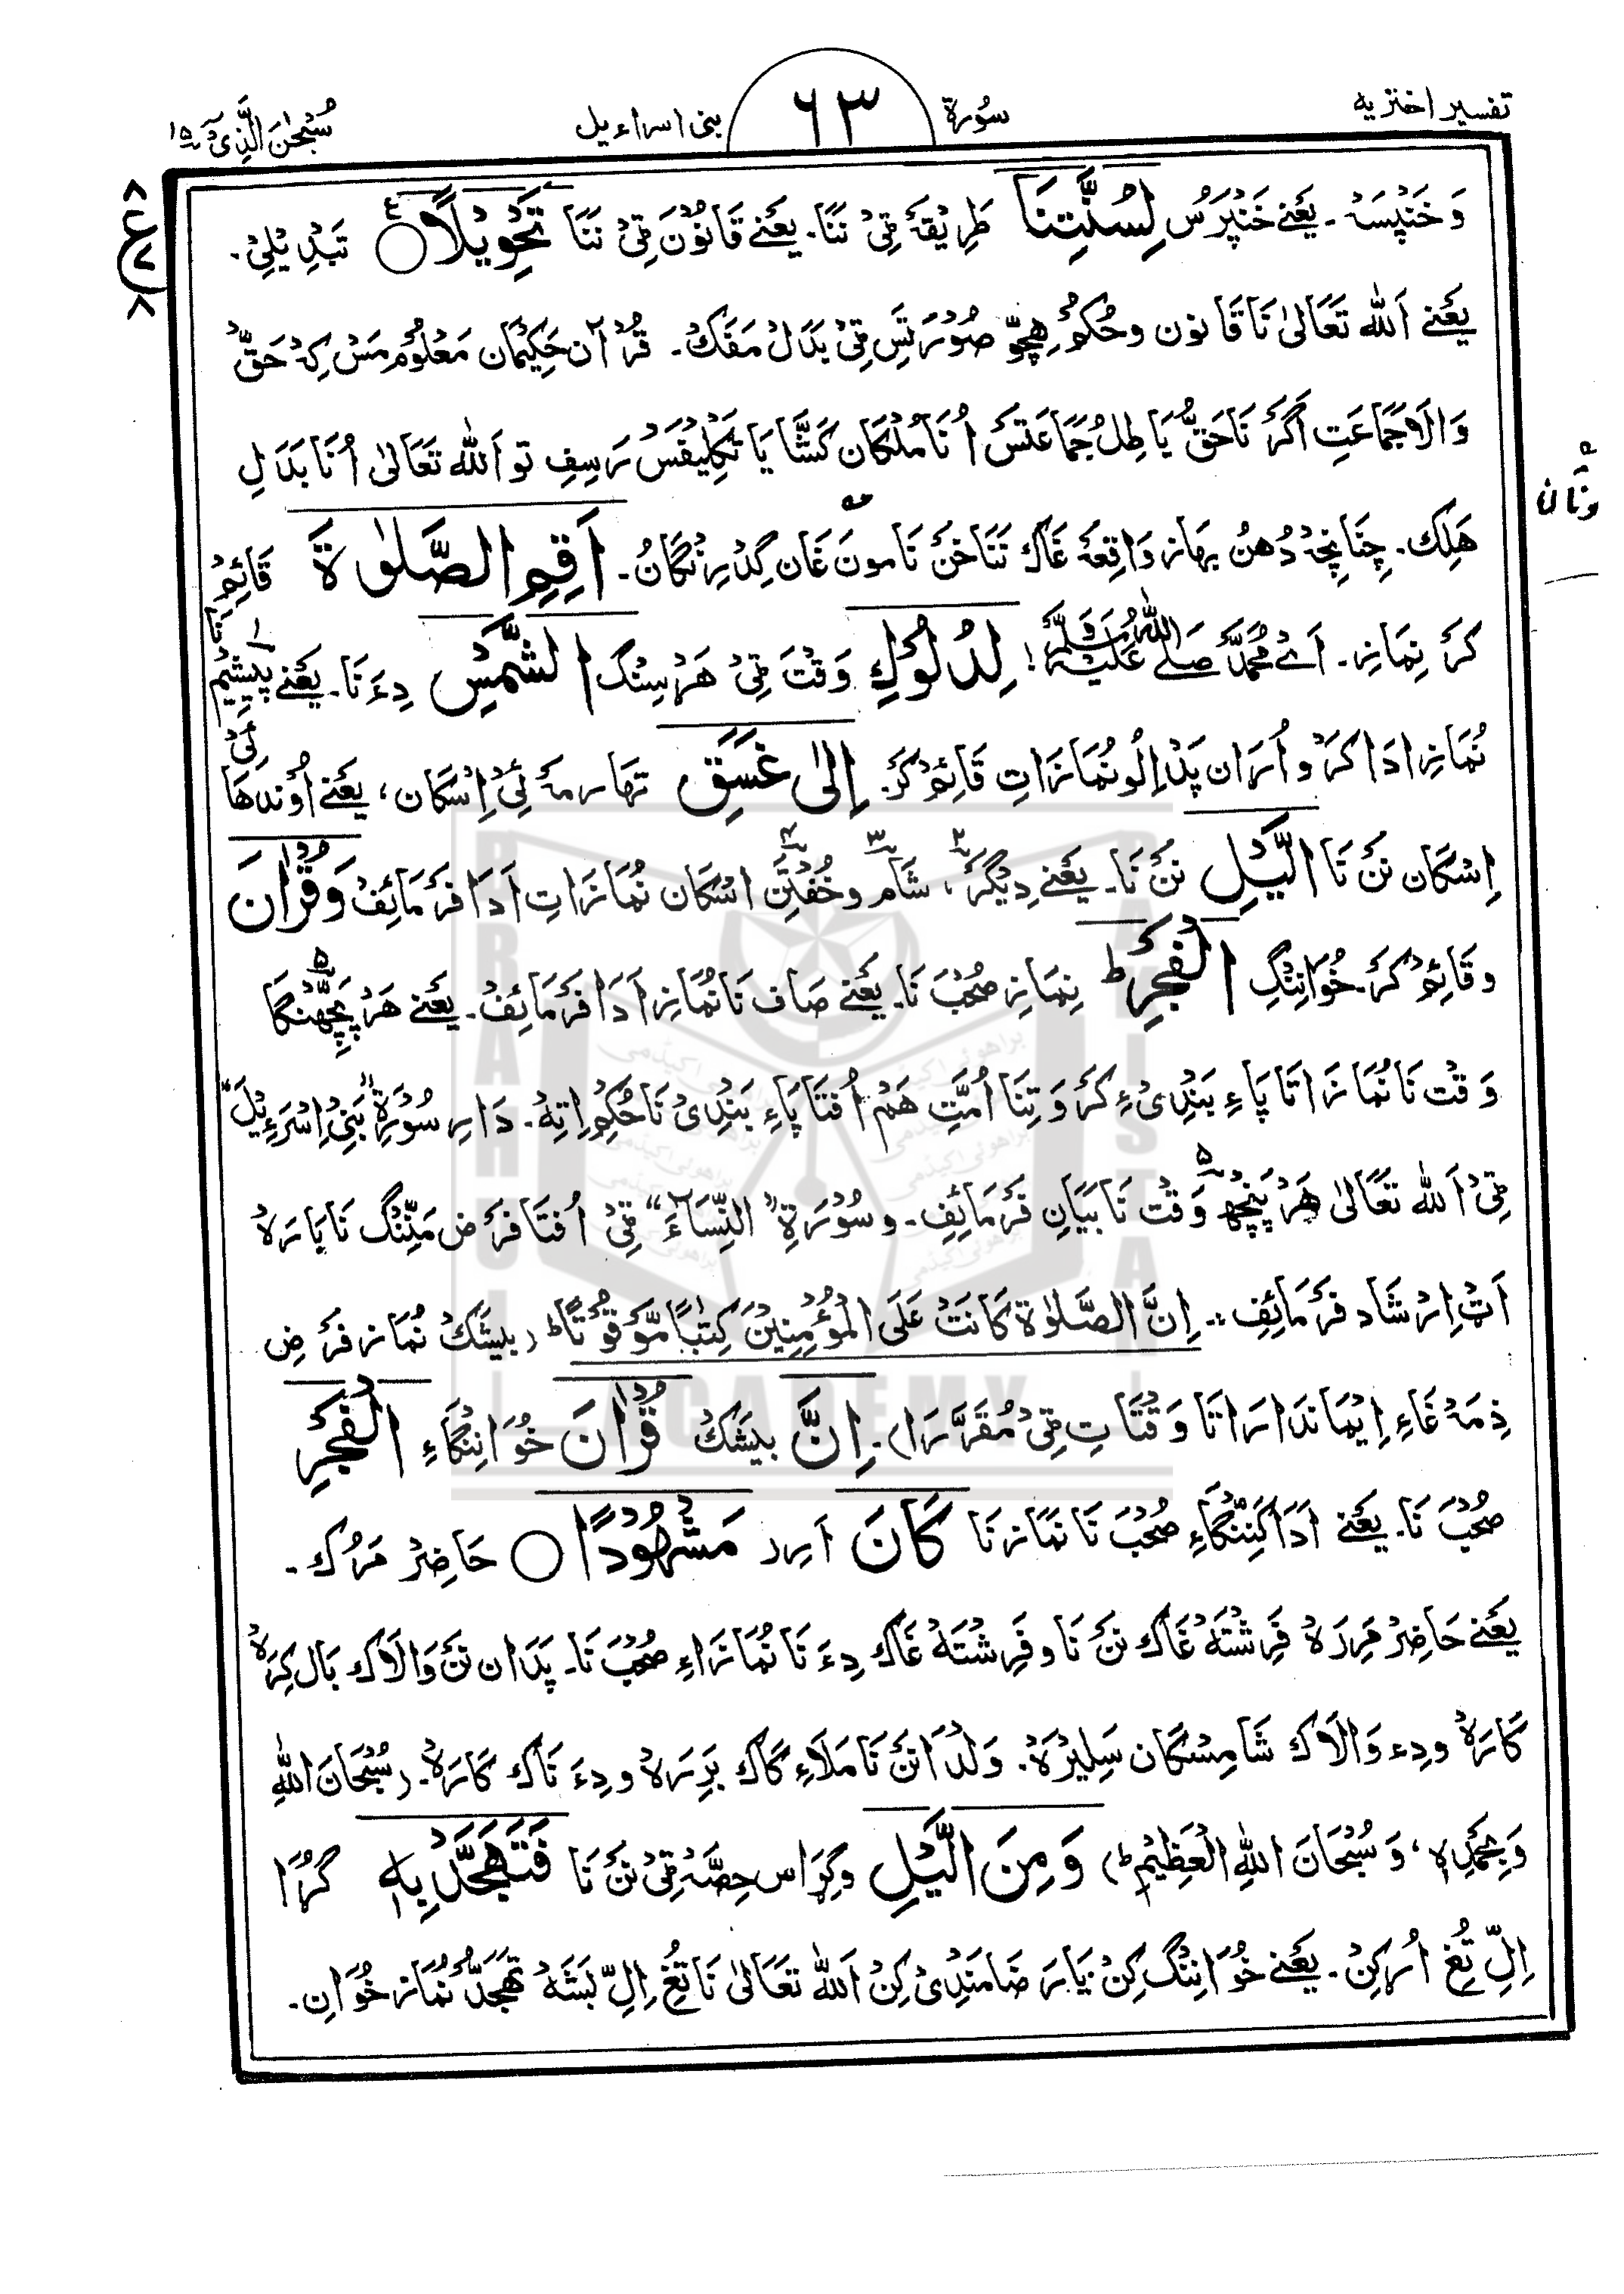 تفسیر اختریه
سُورة ٦٣ بنی اسراءیل
سُبْحٰنَ الَّذِیْ ١٥
وَ خَنْپِسَہْ ۔ یَعْنے خَنْپَرُسْ لِسُنَّتِنَا طَرِیْقَہْ ٹِیْ نَنَا۔ یَعْنے قَانُوْنَ ٹِیْ نَنَا تَحْوِیْلًا ○ تَبْدِیْلِیْ۔
یَعْنے اَللّٰه تَعَالیٰ نَا قَانون وحُکمْ ہِچّو صُوْرَتَسِ ٹِیْ بَدَالْ مَفَکْ۔ قُرْآن حَکِیْمَان مَعْلُوْم مَسْ کِہْ حَقّْ
وَالَا جَمَاعَتِ اَگَرْ نَاحَقّْ یَا طِلْ جَمَاعَتَسْ اُنَا مُلْکَان کَشَّا یَا تَکْلِیْفَسْ رَسِفِ تو اَللّٰه تَعَالیٰ اُنَا بَدَلِ
هَلِک۔ چِنَانِچَہْ دُهُنْ بھاز وَاقِعَہ غَاک نَنَا خَنْ نَا مونَ غَان گِدْرِنْگَانُ۔ اَقِمِ الصَّلٰوةَ قَائِمْ
کَرْ نِمَاز۔ اَے مُحَمَّدْ صَلَے اللّٰهُ عَلَیْهِ وَسَلَّمْ! لِدُلُوْكِ وَقْتَ ٹِیْ هَرْسِنْگ الشَّمْسِ دِءَ نَا۔ یَعْنے پیشِیْم نَا
نُمَازِ اَدَا کَرْ و اُرَان پَدْ اِلُو نُمَازَاتِ قَائِمْ کَرْ۔ اِلٰى غَسَقِ تَهَارمَہْ ئِیْ اِسْکَان، یَعْنے اُوندَهَا لِیْ
اِسْکَان نَنْ نَا الَّیْلِ نَنْ نَا۔ یَعْنے دِیْگَرْ، شَام و خُفْتَنْ اسْکَان نُمَازَاتِ اَدَا فَرْمَائِفْ وَقُرْاٰنَ
و قَائِمْ کَرْ خُوَانِنْگِ الْفَجْرِ ط نِمَازِ صُحْبَ نَا۔ یَعْنے صَاف نَا نُمَازِ اَدَا فَرْمَائِفْ۔ یَعْنے هَرْ پَنْچَہْنْگَا
وَقْت نَا نُمَازَاتَا پَاءِ بَنْدِیْءِ کَرْ وَ تِنَا اُمَّتِ هَمْ اُفْتَا پَاءِ بَنْدِیْ نَا حُکْم اِتِہْ۔ دَارِ سُوْرَةِ "بَنِیْ اِسْرَءِیْلَ"
ٹِیْ اَللّٰه تَعَالیٰ هَرْ پَنْچْ وَقْت نَا بَیَانِ فَرْمَائِفِ۔ و سُوْرَةِ "النِّسَاءَ" ٹِیْ اُفْتَا فَرَض مَنِّنْگ نَا پَارَہْ
اَٹْ اِرْشَاد فَرْمَائِفِ۔ اِنَّ الصَّلٰوةَ كَانَتْ عَلَى الْمُؤْمِنِیْنَ كِتٰبًا مَّوْقُوْتًا ط (بیشَکْ نُمَاز فَرْضِ
ذِمَہْ غَاءِ اِیْمَاندَارَاتَا وَقْتَاتِ ٹِیْ مُقَرَّرَا)۔ اِنَّ بیشَکْ قُرْاٰنَ خُوَانِنْگَاءِ الْفَجْرِ
صُحْبَ نَا۔ یَعْنے اَدَا کَنِنْگَاءِ صُحْبَ نَا نَمَاز نَا كَانَ اَرِد مَشْهُوْدًا ○ حَاضِرْ مَرُک۔
یَعْنے حَاضِرْ مَرِدَہْ فَرِشْتَہْ غَاک نَنْ نَا و فَرِشْتَہْ غَاک دِءَ نَا نُمَازَاءِ صُحْبَ نَا۔ پَدَان نَنْ وَالَاک بَال کِرَہْ
کَارَہْ ودِء وَالَاک شَامِسْکَان سَلِیْرَہْ۔ وَلْدَانَنْ نَا مَلَاءِ کَاک بَرِرَہْ ودِءَ نَاک کَارَہْ۔ (سُبْحَانَ اللّٰهِ
وَبِحَمْدِهٖ، وَ سُبْحَانَ اللّٰهِ الْعَظِیْمِ ط) وَمِنَ الَّیْلِ وگِرَاس حِصَّہْ ٹِیْ نَنْ نَا فَتَهَجَّدْ بِهٖ گُرَا
اِلِّ تُغِ اُرکِنْ۔ یَعْنے خُوَانِنْگ کِنْ یَارَ ضَامَنْدِیْ کِنْ اَللّٰه تَعَالیٰ نَا تُغِ اِلِّ بَشَہْ تَهَجُّدْ نُمَاز خُوَانِ۔
BRAHUI ACADEMY PAKISTAN